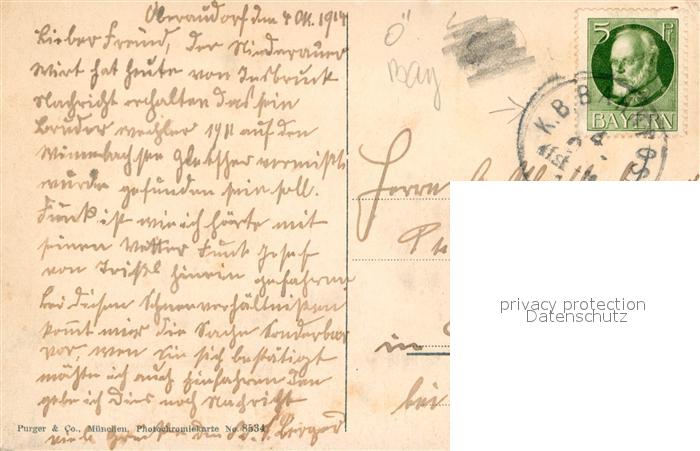 Oberaudorf den 4 Okt. 1914
Lieber Freund, Der Niederauer
Wirt hat heute von Insbruck
Nachricht erhalten das sein
Bruder welcher 1911 auf den
Gletscher vermisst
wurde gefunden sein soll.
Funk ist wie ich hörte mit
seinen Vetter Funk Josef
von hinein gefahren
bei diesen Schneeverhältnissen
kommt mir die Sache Sonderbar
vor, wen sie sich bestätigt
möchte ich auch hinfahren dan
gebe ich Dies noch Nachricht
viele Grüsse
Purger & Co., München, Photochromiekarte No. 8534
Ö
Bay
5 Pf
BAYERN
K.B. BAHNPOST
Herrn
in
bei
privacy protection
Datenschutz